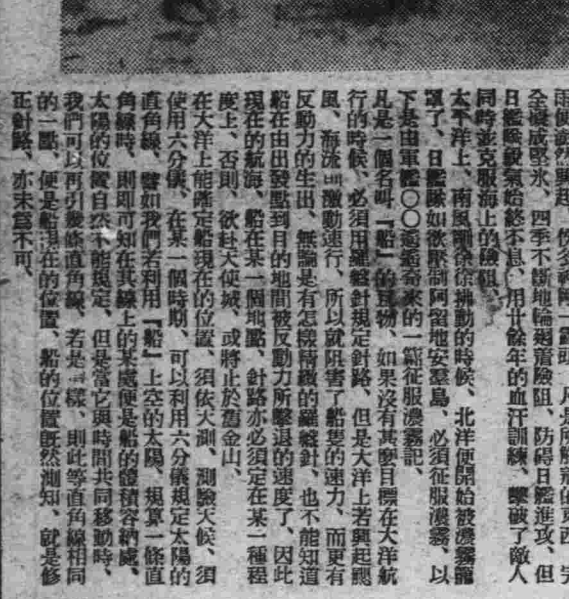 全壞成堅氷、四季不斷地輪廻着險阻、防碍日艦進攻、但
日艦隊銳氣始終不息、用廿餘年的血汗訓練、擊破了敵人
同時並克服海上的險阻、
太平洋上、南風剛徐徐拂動的時候、北洋便開始被濃霧籠
罩了、日艦隊如欲壓制阿留地安羣島、必須征服濃霧、以
下是由軍艦〇〇遙遙寄來的一篇征服濃霧記、
凡是一個名叫『船』的器物、如果沒有甚麼目標在大洋航
行的時候、必須用羅盤針規定針路、但是大洋上若興起颶
風、海流 激動速行、所以就阻害了船隻的速力、而更有
反動力的生出、無論是有怎樣精緻的羅盤針、也不能知道
船在由出發點到目的地間被反動力所擊退的速度了、因此
現在的航海、船在某一個地點、針路亦必須定在某一種程
度上、否則、欲赴天使城、或將止於舊金山、
在大洋上能確定船現在的位置、須依天測、測驗天候、須
使用六分儀、在某一個時期、可以利用六分儀規定太陽的
直角線、譬如我們若利用『船』上空的太陽、規算一條直
角線時、則即可知在其線上的某處便是船的體積容納處、
太陽的位置自然不能規定、但是當它與時間共同移動時、
我們可以再引幾條直角線、若是一樣、則此等直角線相同
的一點、便是船現在的位置、船的位置既然測知、就是修
正針路、亦未爲不可、